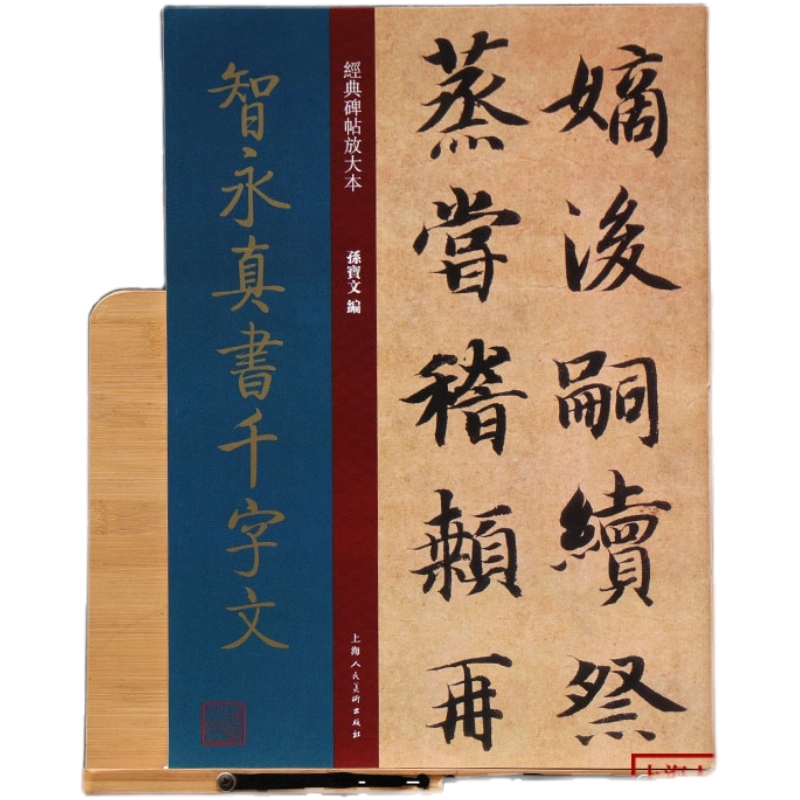 嫡後嗣續祭
蒸嘗稽顙再
經典碑帖放大本
孫寶文 編
上海人民美術出版社
智永真書千字文